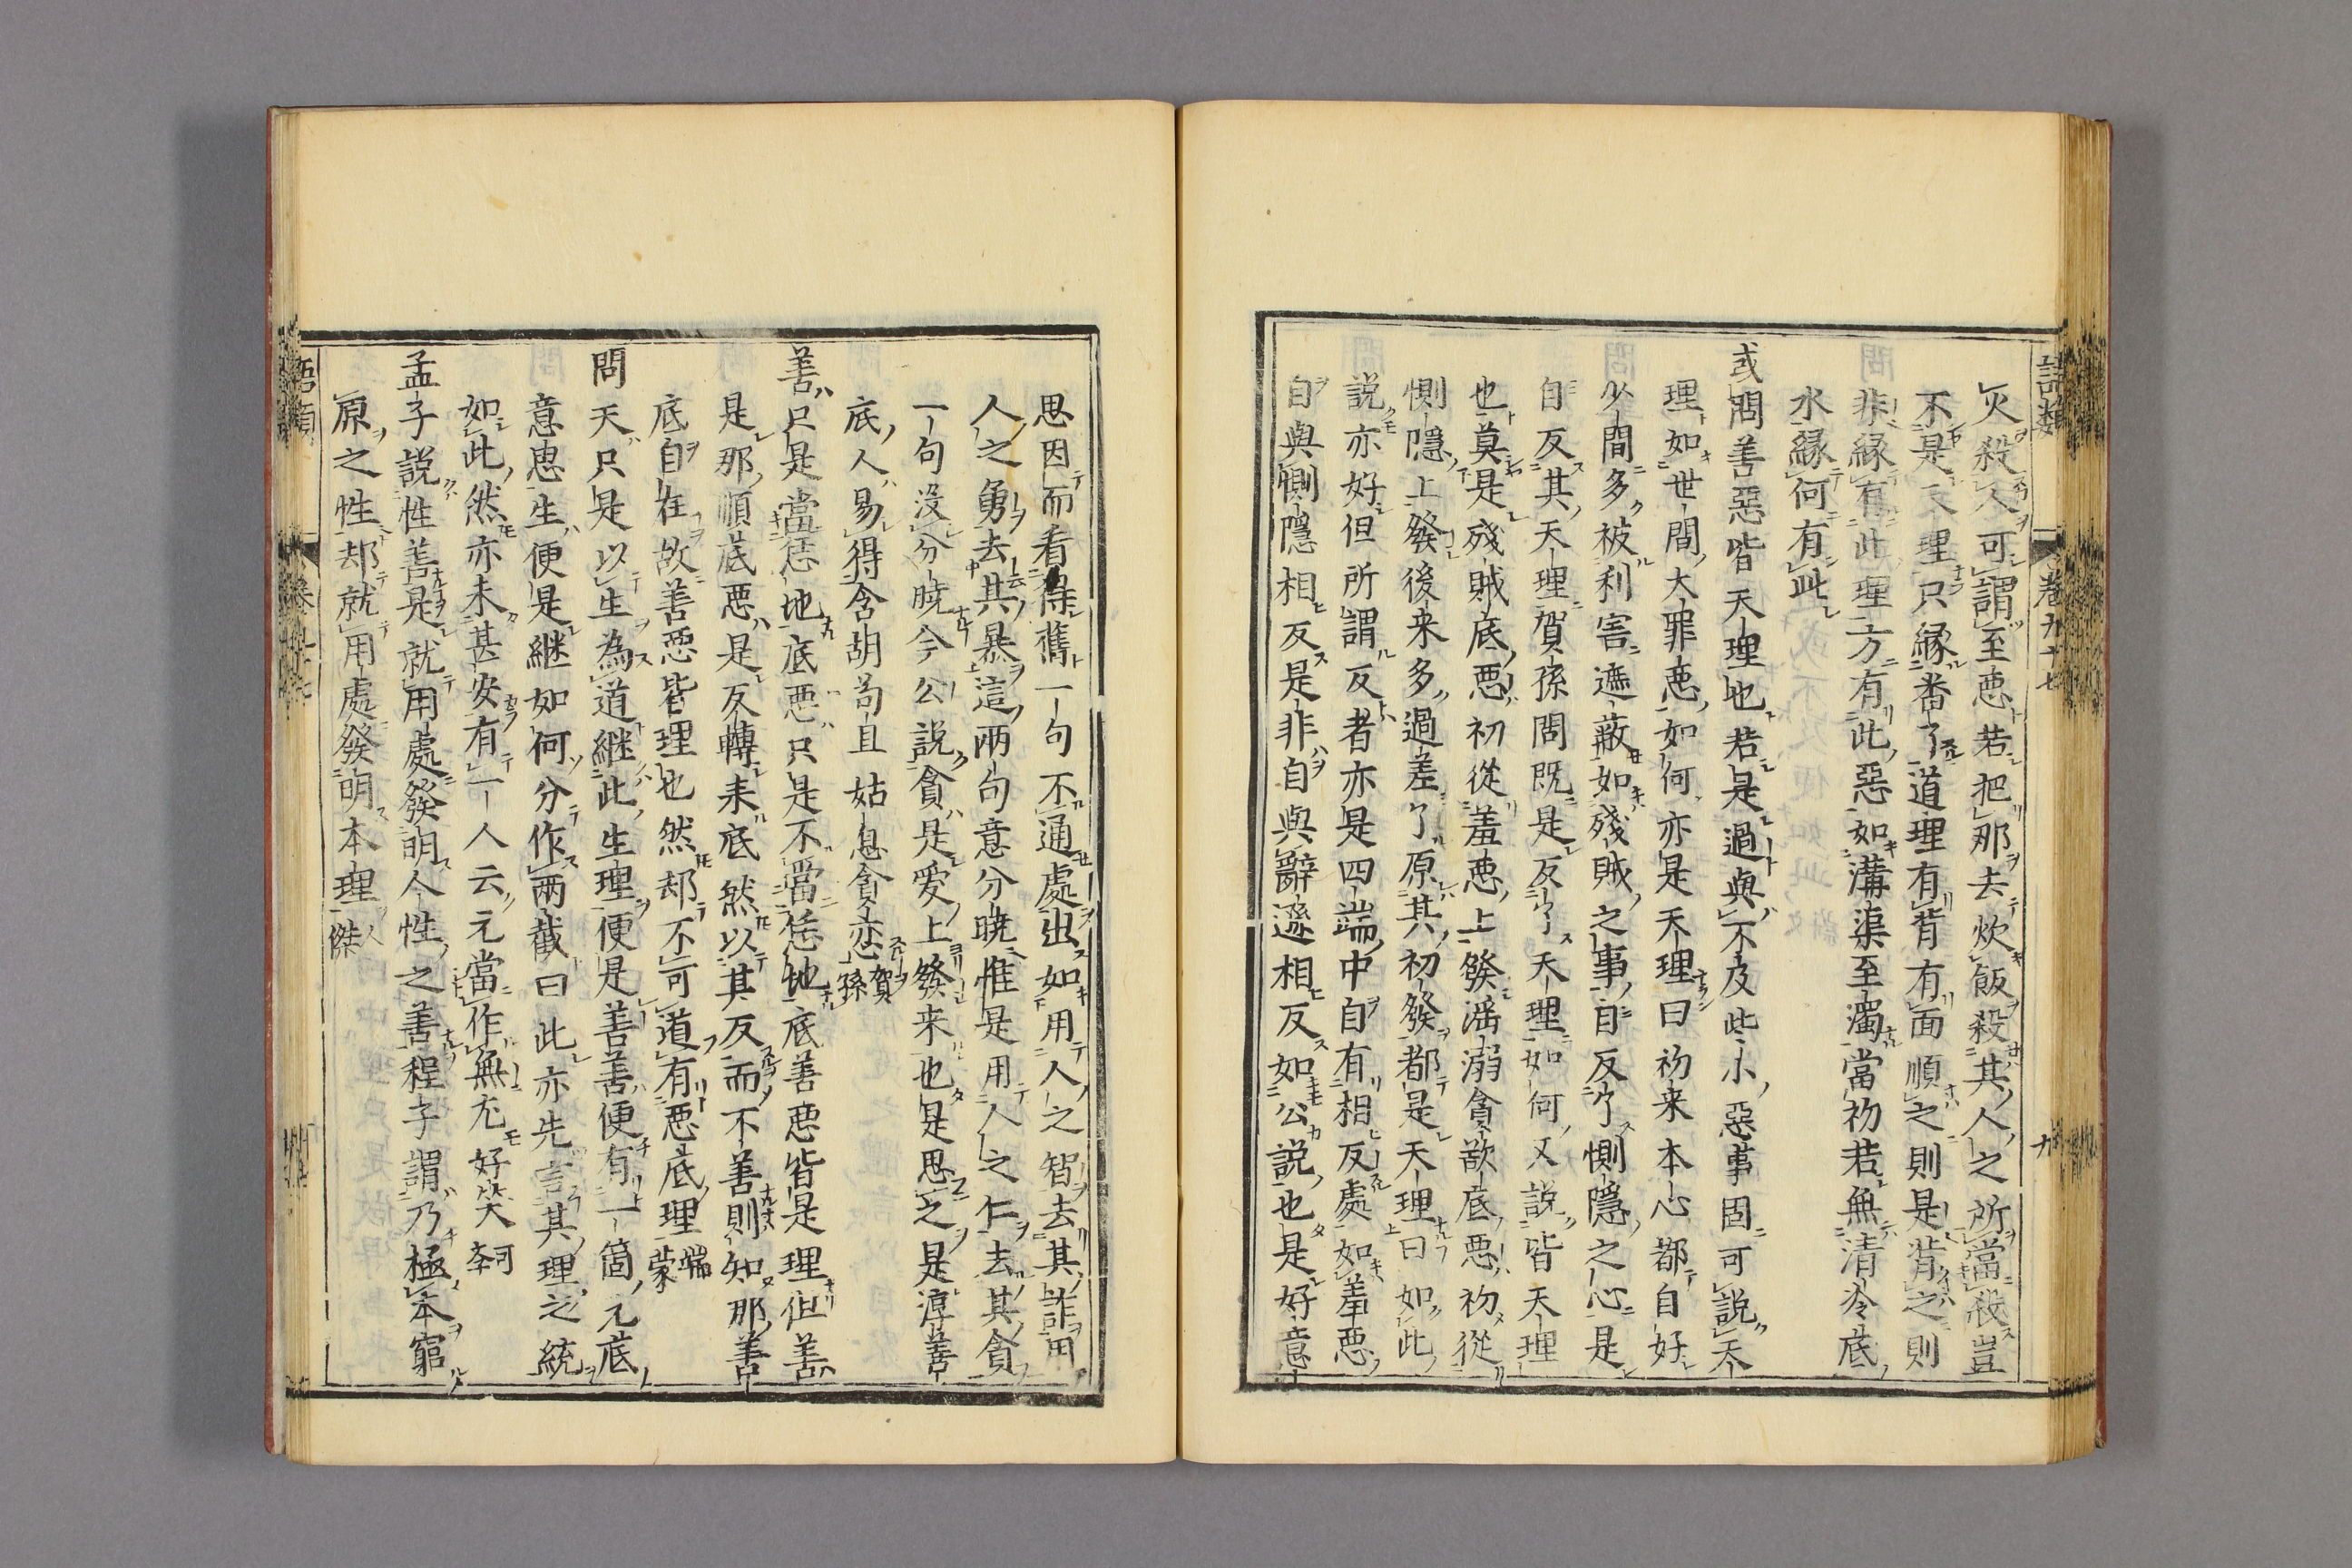 語類
卷九十七
九
火殺人可謂至惡若把那去炊飯殺其人之所當殺豈
不是天理只緣番了道理有背有面順之則是背之則
非緣有此理方有此惡如溝渠至濁當初若無清冷底
水緣何有此
或問善惡皆天理也若是過與不及些小惡事固可說天
理如世間大罪惡如何亦是天理曰初来本心都自好
少間多被利害遮蔽如殘賊之事自反了惻隱之心是
自反其天理賀孫問既是反了天理如何又說皆天理
也莫是殘賊底惡初從羞惡上發淫溺貪欲底惡初從
惻隱上發後来多過差了原其初發都是天理曰如此
說亦好但所謂反者亦是四端中自有相反處如羞惡
自與惻隱相反是非自與辭遜相反如公說也是好意
思因而看得舊一句不通處出如用人之智去其詐用
人之勇去其暴這兩句意分曉惟是用人之仁去其貪
一句没分曉今公說貪是愛上發来也是思之是淳善
底人易得含胡苟且姑息貪恋賀
孫
善只是當恁地底惡只是不當恁地底善惡皆是理但善
是那順底惡是反轉来底然以其反而不善則知那善
底自在故善惡皆理也然却不可道有惡底理端
蒙
問天只是以生為道継此生理便是善善便有一箇元底
意恵生便是継如何分作兩截曰此亦先言其理之統
如此然亦未甚安有一人云元當作無尤好笑可
孛
孟子說性善是就用處發明人性之善程子謂乃極本窮
原之性却就用處發明本理人
傑
語類